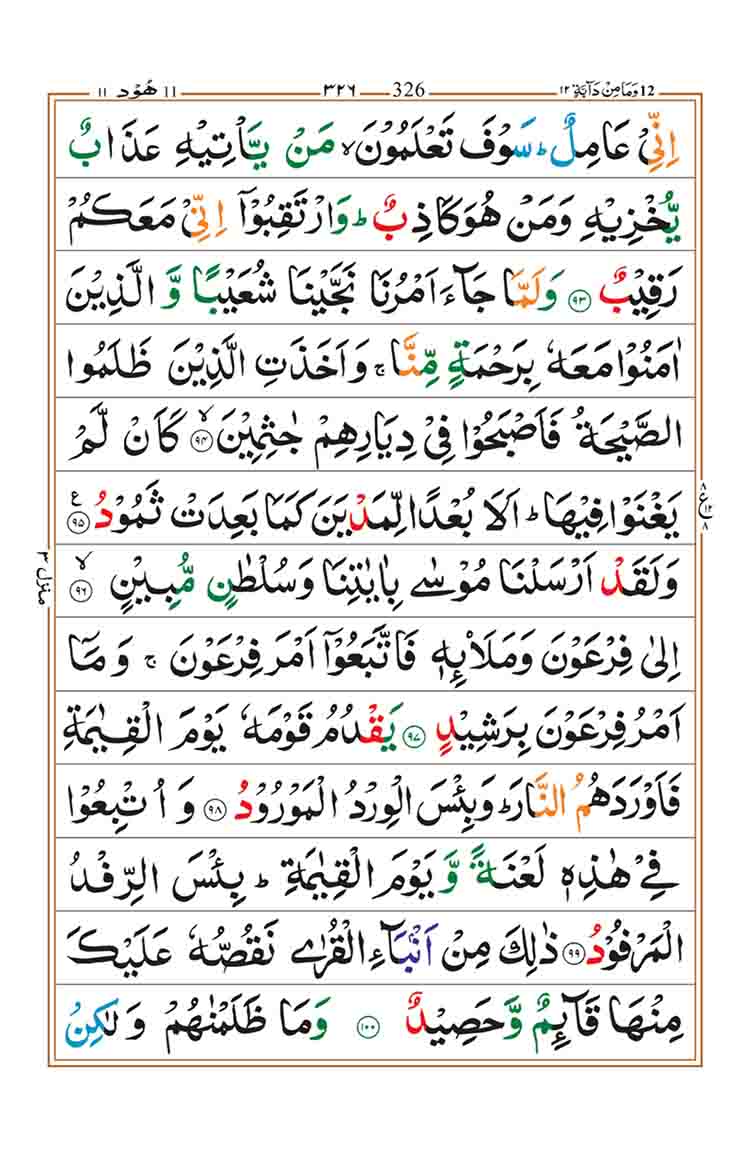 12 وَمَا مِنْ دَآبَّةٍ ١٢ 326 ٣٢٦ 11 هُوْد ١١
اِنِّىْ عَامِلٌ ؕ سَوْفَ تَعْلَمُوْنَ ۙ مَنْ يَّاْتِيْهِ عَذَابٌ
يُّخْزِيْهِ وَمَنْ هُوَ كَاذِبٌ ؕ وَارْتَقِبُوْۤا اِنِّىْ مَعَكُمْ
رَقِيْبٌ ﴿٩٣﴾ وَلَمَّا جَآءَ اَمْرُنَا نَجَّيْنَا شُعَيْبًا وَّ الَّذِيْنَ
اٰمَنُوْا مَعَهٗ بِرَحْمَةٍ مِّنَّا ۚ وَاَخَذَتِ الَّذِيْنَ ظَلَمُوا
الصَّيْحَةُ فَاَصْبَحُوْا فِىْ دِيَارِهِمْ جٰثِمِيْنَ ۙ﴿٩٤﴾ كَاَنْ لَّمْ
يَغْنَوْا فِيْهَا ؕ اَلَا بُعْدًا لِّمَدْيَنَ كَمَا بَعِدَتْ ثَمُوْدُ ﴿٩٥﴾ ع
وَلَقَدْ اَرْسَلْنَا مُوْسٰى بِاٰيٰتِنَا وَسُلْطٰنٍ مُّبِيْنٍ ۙ﴿٩٦﴾
اِلٰى فِرْعَوْنَ وَمَلَا۟ئِهٖ فَاتَّبَعُوْۤا اَمْرَ فِرْعَوْنَ ۚ وَمَاۤ
اَمْرُ فِرْعَوْنَ بِرَشِيْدٍ ﴿٩٧﴾ يَقْدُمُ قَوْمَهٗ يَوْمَ الْقِيٰمَةِ
فَاَوْرَدَهُمُ النَّارَ ؕ وَبِئْسَ الْوِرْدُ الْمَوْرُوْدُ ﴿٩٨﴾ وَ اُتْبِعُوْا
فِىْ هٰذِهٖ لَعْنَةً وَّ يَوْمَ الْقِيٰمَةِ ؕ بِئْسَ الرِّفْدُ
الْمَرْفُوْدُ ﴿٩٩﴾ ذٰلِكَ مِنْ اَنْۢبَآءِ الْقُرٰى نَقُصُّهٗ عَلَيْكَ
مِنْهَا قَآئِمٌ وَّحَصِيْدٌ ﴿١٠٠﴾ وَمَا ظَلَمْنٰهُمْ وَ لٰكِنْ
٨ ع ١٢ ٨
منزل ٣